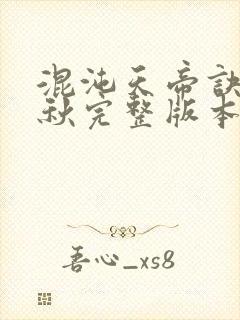 混沌天帝訣
秋完整版本
吾心_xs8